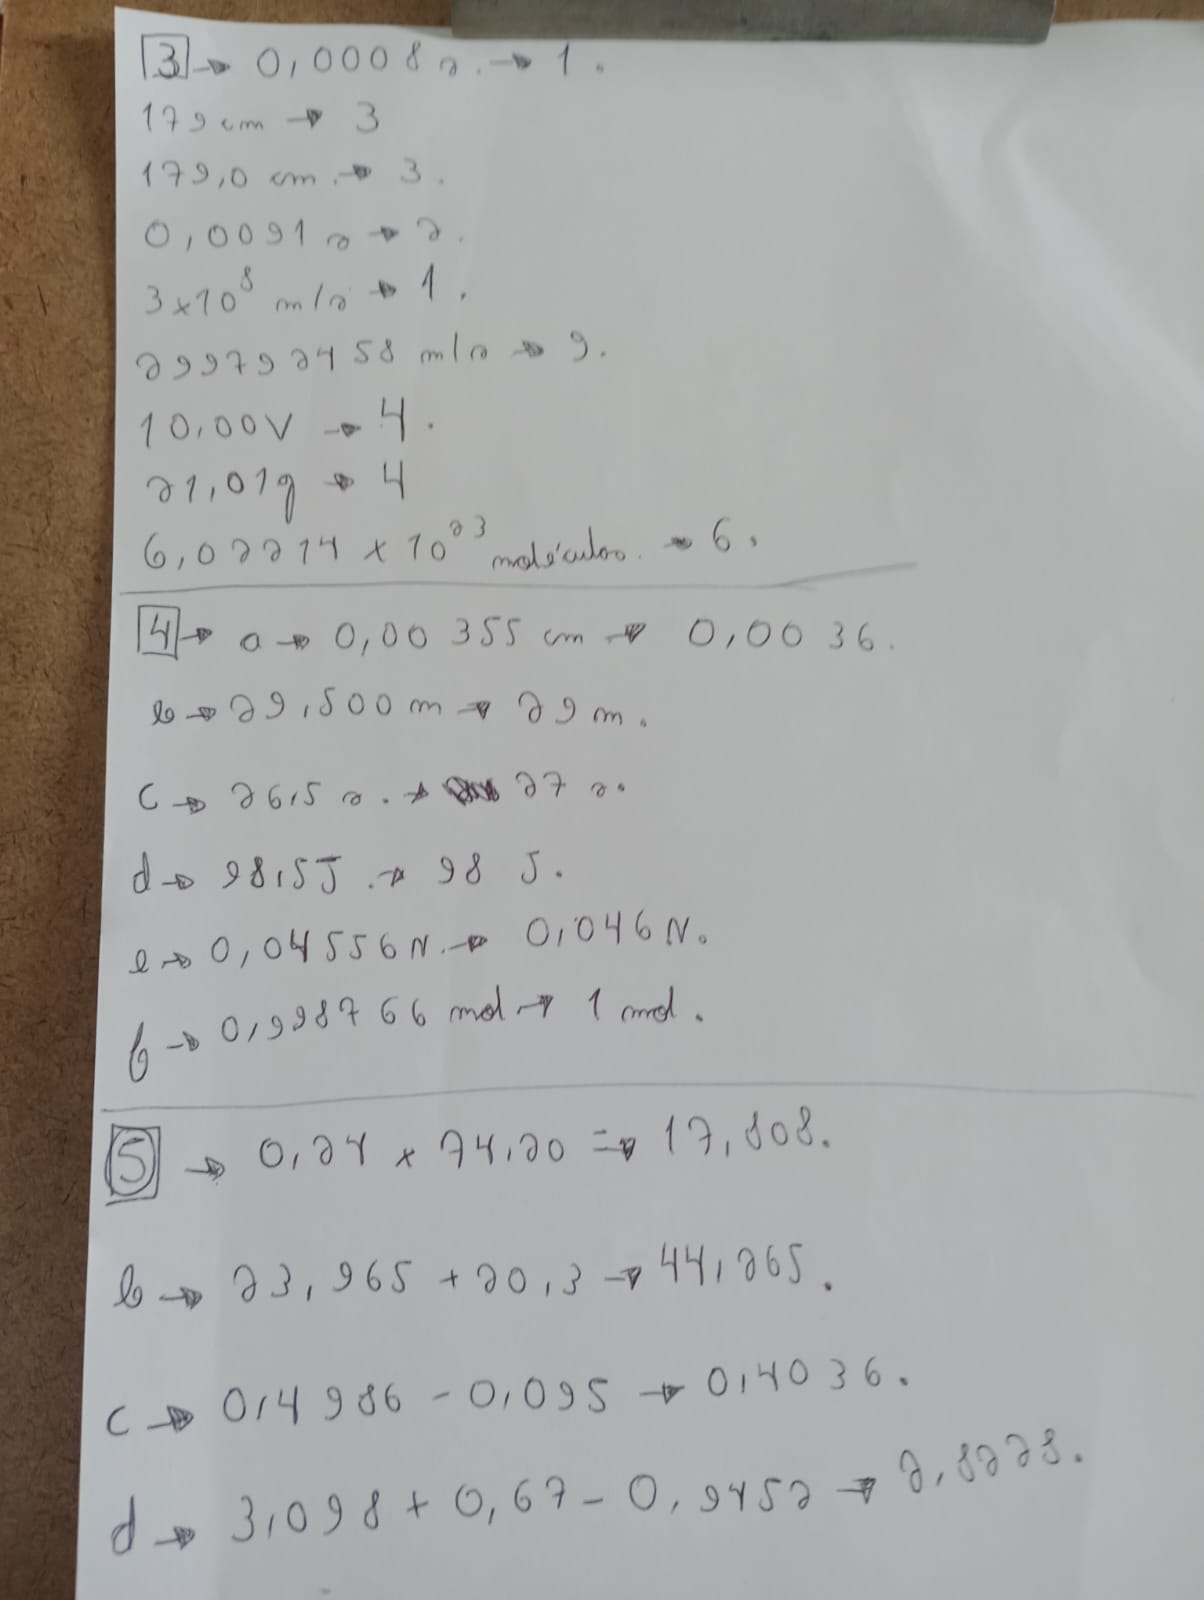 3 → 0,0008 s. → 1.
179 cm → 3
179,0 cm. → 3.
0,0091 s → 2.
3x10⁸ m/s → 1.
299792458 m/s → 9.
10,00V → 4.
21,01g → 4
6,02214 x 10²³ moléculas. → 6.
4 → a → 0,00355 cm → 0,0036.
b → 29,500 m → 29 m.
c → 26,5 s. → 27 s.
d → 98,5J. → 98 J.
e → 0,04556N. → 0,046N.
f → 0,998766 mol → 1 mol.
5 → 0,24 x 74,20 = → 17,808.
b → 23,965 + 20,3 → 44,265.
c → 0,4986 - 0,095 → 0,4036.
d → 3,098 + 0,67 - 0,9452 → 2,8228.